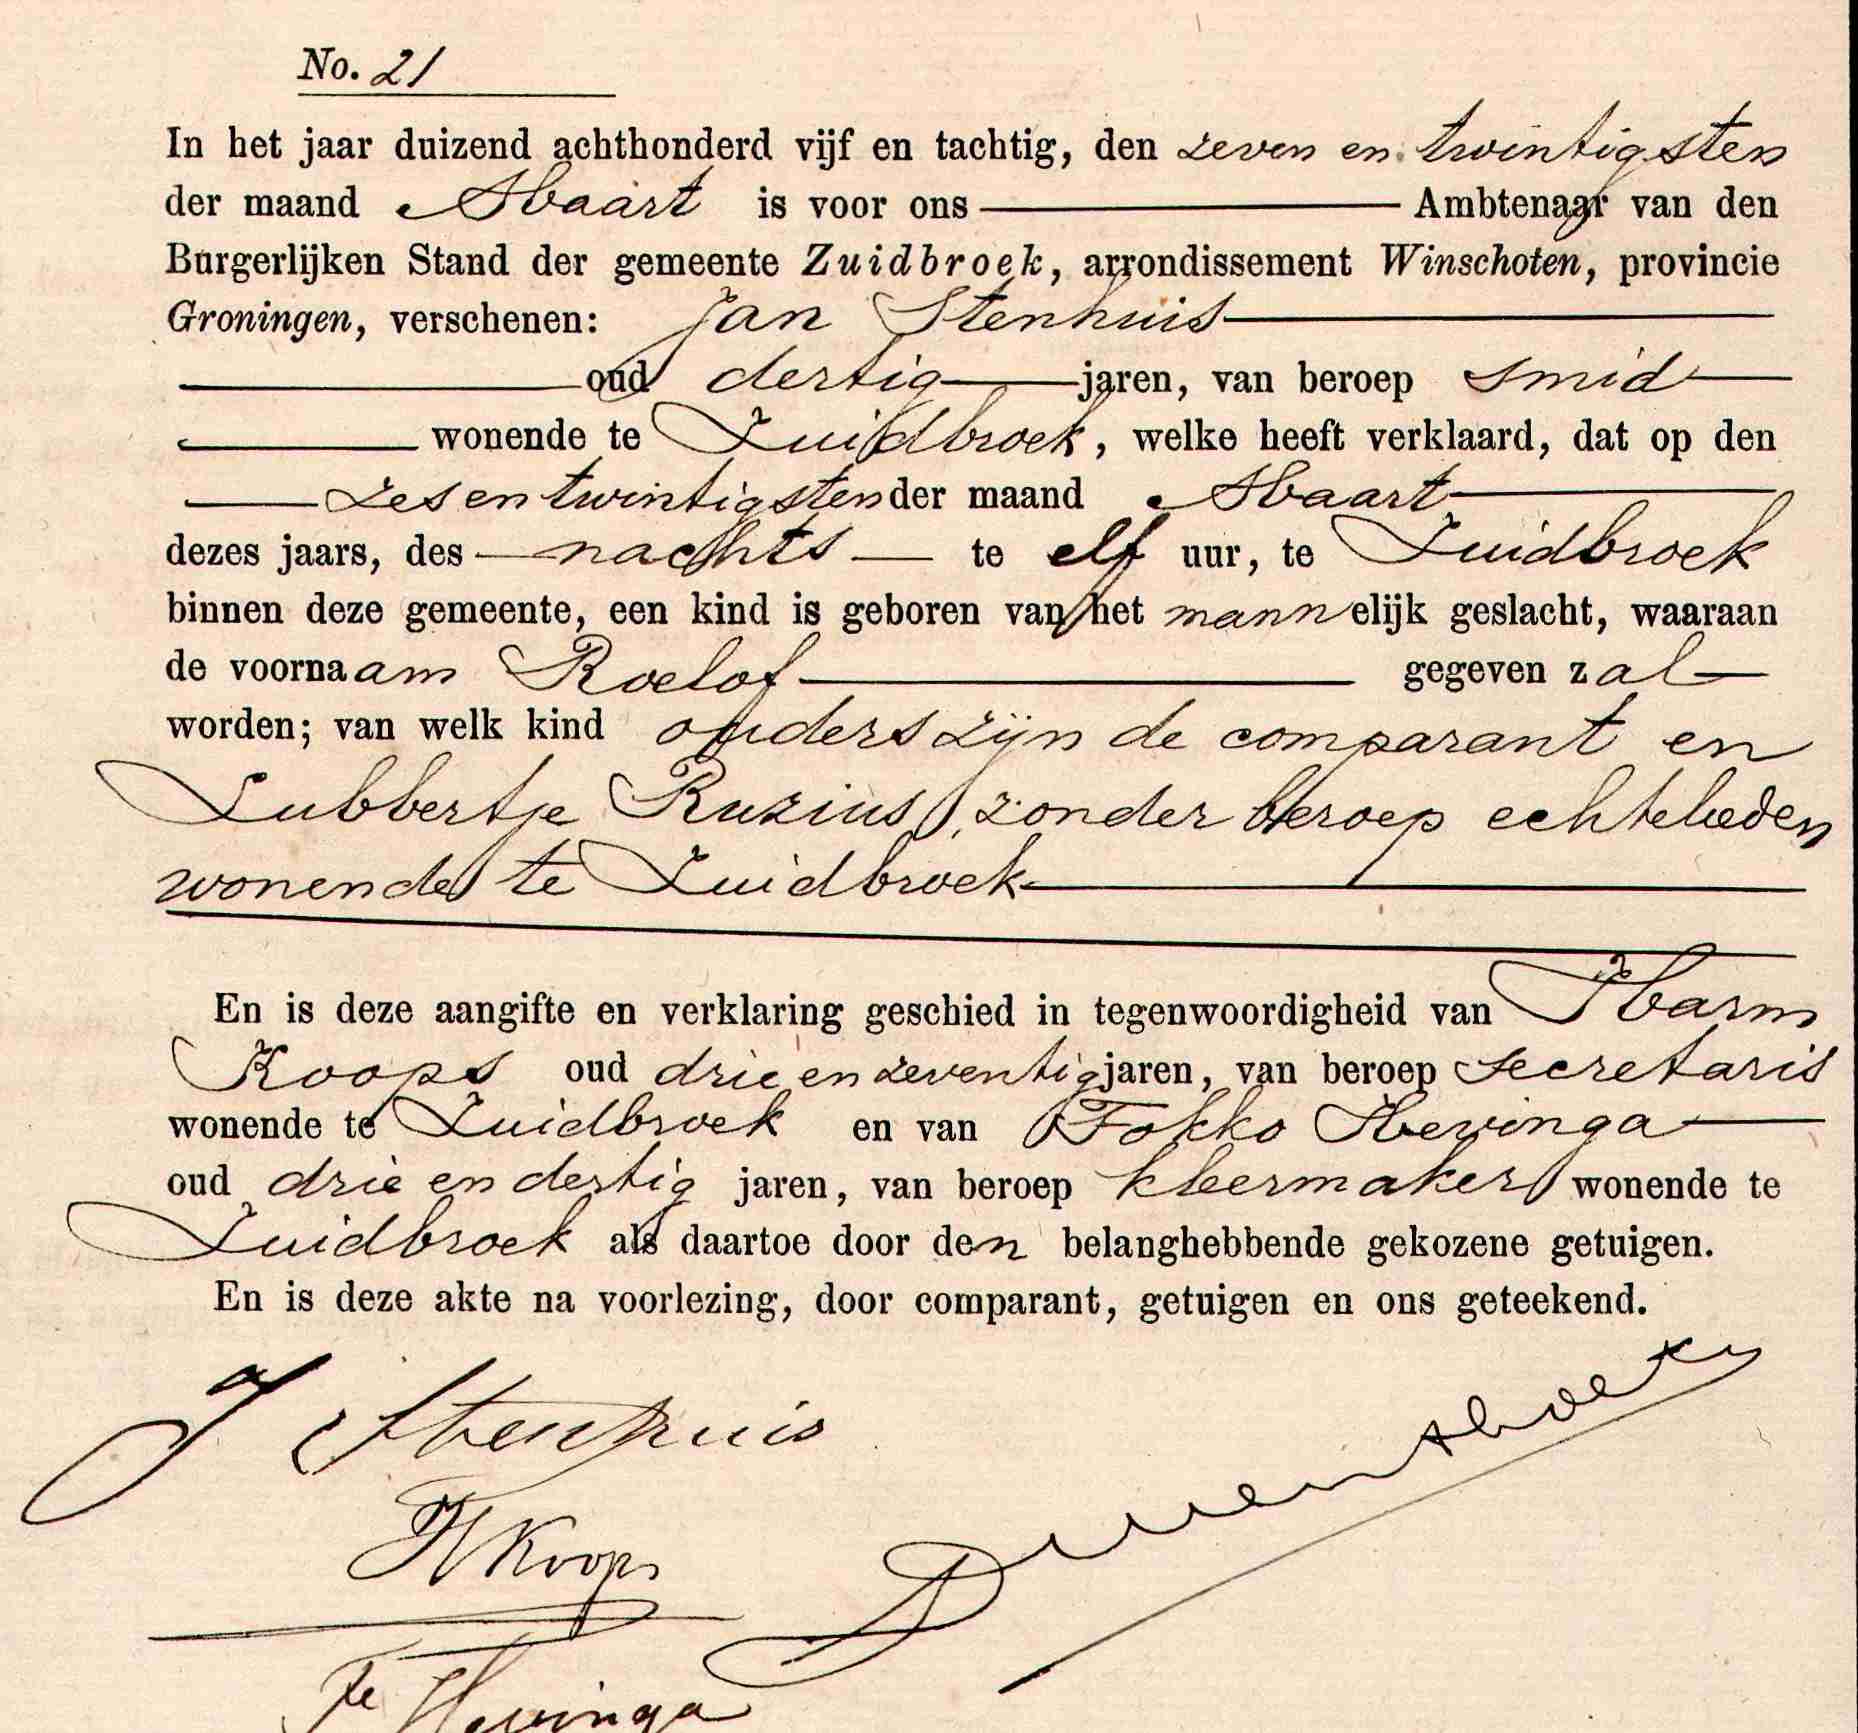 No. 21
In het jaar duizend achthonderd vijf en tachtig, den zeven en twintigsten
der maand Maart is voor ons Ambtenaar van den
Burgerlijken Stand der gemeente Zuidbroek, arrondissement Winschoten, provincie
Groningen, verschenen: Jan Stenhuis
oud dertig jaren, van beroep smid
wonende te Zuidbroek, welke heeft verklaard, dat op den
zes en twintigsten der maand Maart
dezes jaars, des nachts te elf uur, te Zuidbroek
binnen deze gemeente, een kind is geboren van het mannelijk geslacht, waaraan
de voornaam Roelof gegeven zal
worden; van welk kind ouders zijn de comparant en
Lubbertje Ruzius, zonder beroep echtelieden
wonende te Zuidbroek
En is deze aangifte en verklaring geschied in tegenwoordigheid van Harm
Koops oud drie en zeventig jaren, van beroep secretaris
wonende te Zuidbroek en van Fokko Hevinga
oud drie en dertig jaren, van beroep kleermaker wonende te
Zuidbroek als daartoe door den belanghebbende gekozene getuigen.
En is deze akte na voorlezing, door comparant, getuigen en ons geteekend.
J Stenhuis
H Koops
Fe Hevinga